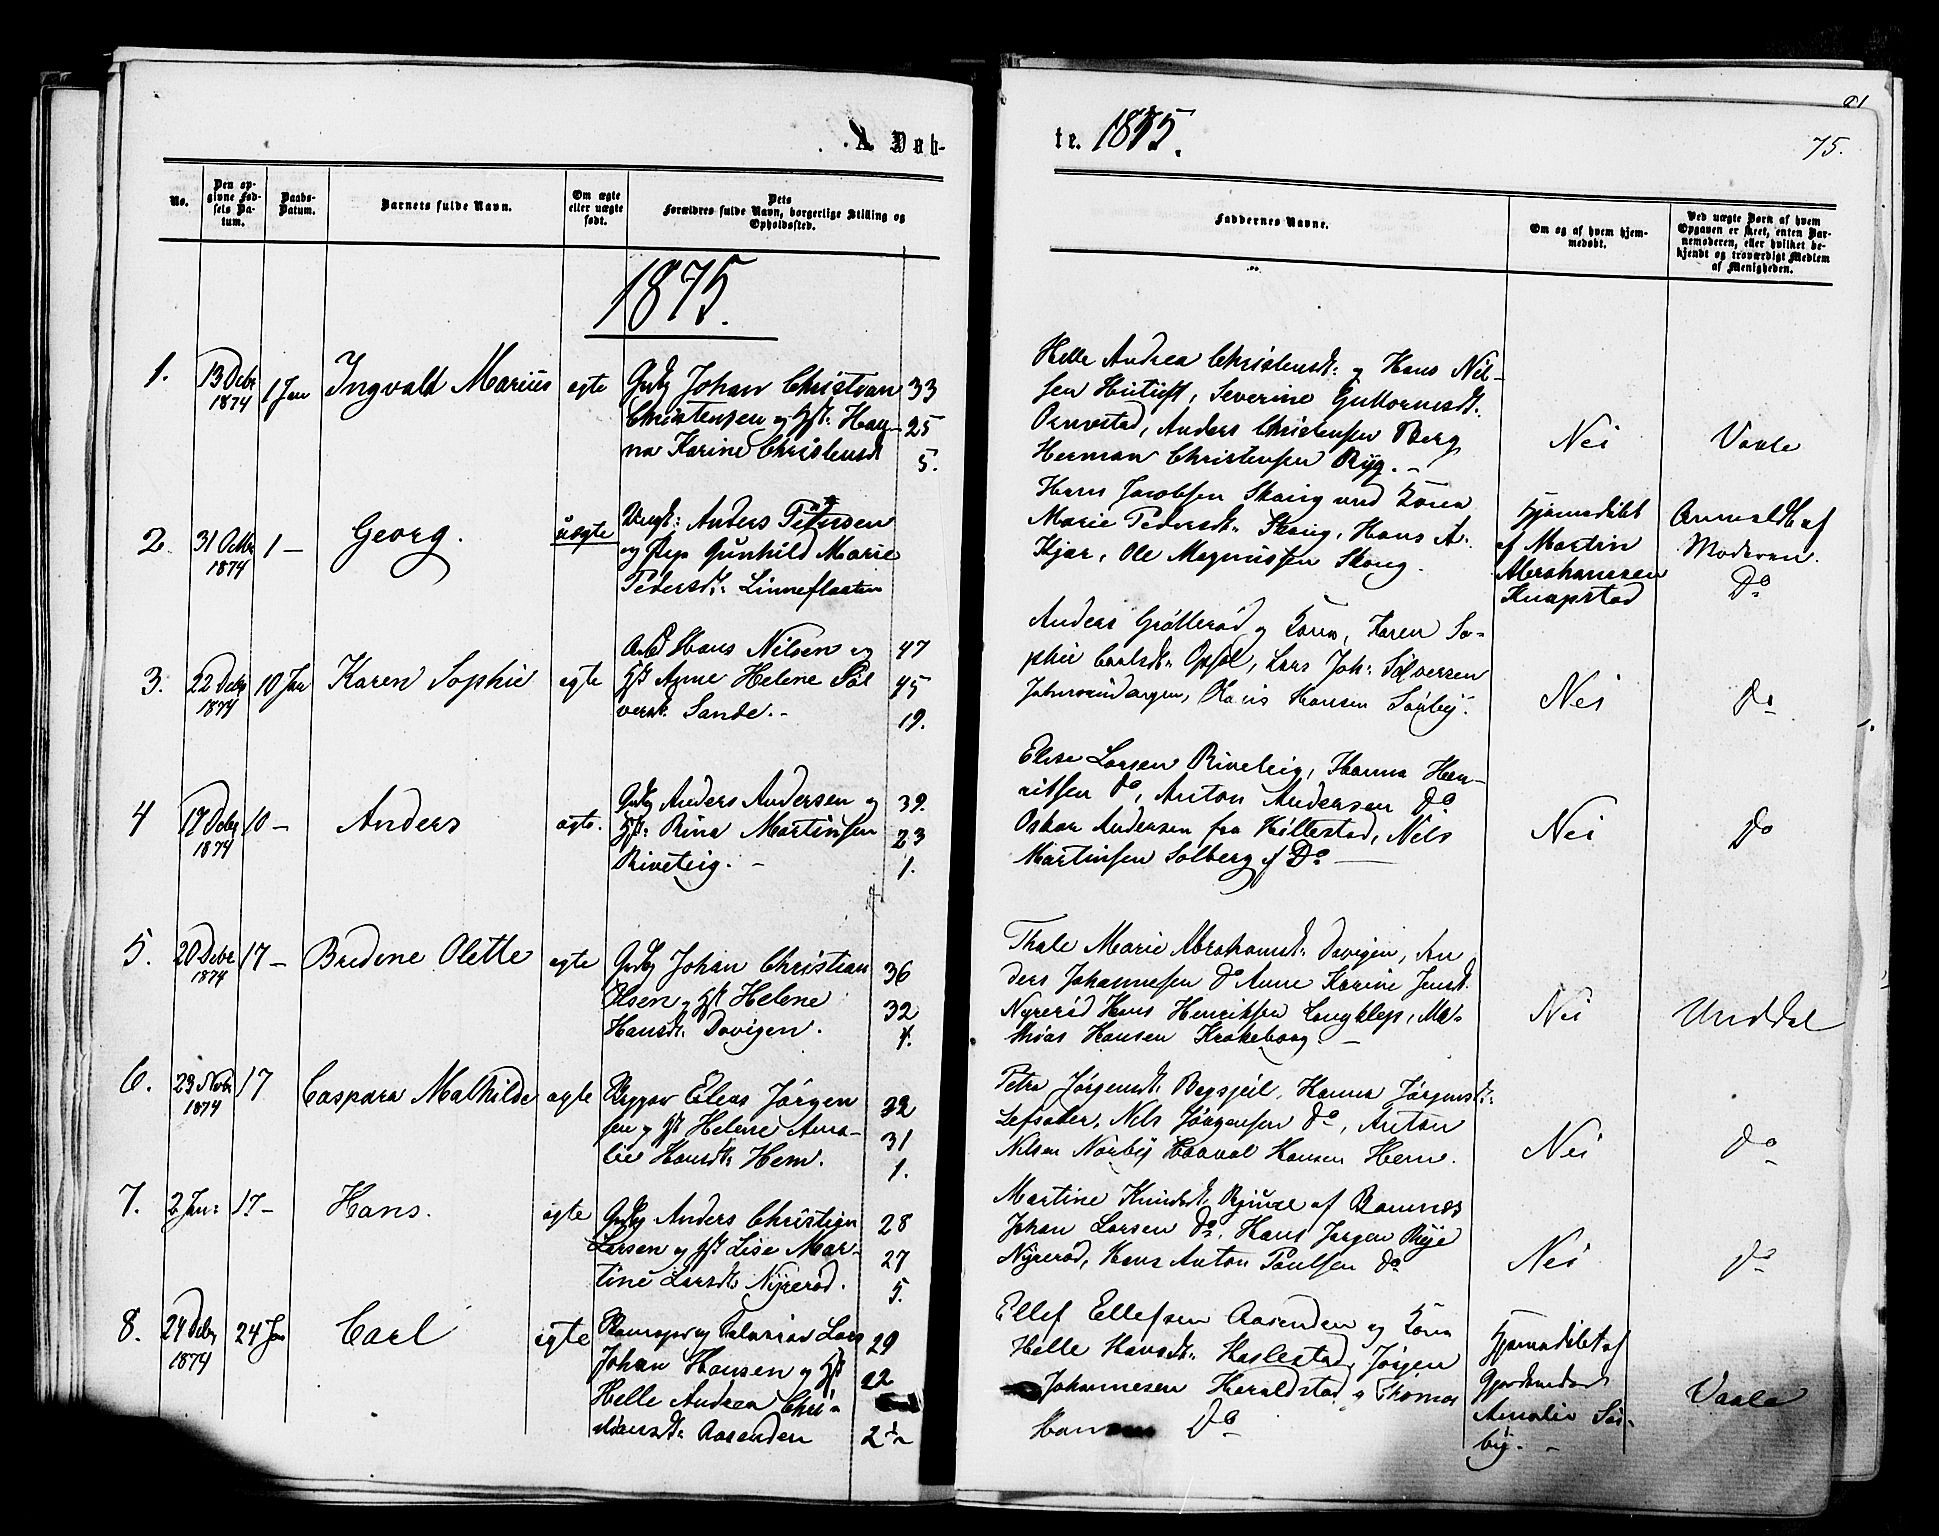 A. Døb-
te. 1875.
75.
No.
Den op-
givne Fød-
sels Da-
tum.
Daabs-
Datum.
Barnets fulde Navn.
Om ægte
eller uægte
født.
Dets
Forældres fulde Navn, borgerlige Stilling og
Opholdssted.
Faddernes Navne.
Om og af hvem hjem-
medøbt.
Ved uægte Børn af hvem
Opgaven er skeet, enten Bar-
nemoderen, eller hvilket be-
kjendt og troværdigt Medlem
af Menigheden.
1875.
1.
13 Debr
1874
1 Jan
Ingvald Marius
ægte
Johan Christian
Christensen og Han-
na Karine Christensd
33
25
5.
Helle Andrea Christensdt: og Hans Nil-
sen, Severine Guttormsdt:
Anders Christensen Berg
Herman Christensen Ryg. -
Nei
Vaale
2
31 Octbr
1874
1 -
Georg.
uægte
Anders Petersen
og Pige Gunhild Marie
Pedersdt: Linneflaaten
Hans Jacobsen Skoug med Kona
Marie Pedersdt: Skoug, Hans A.
Kjær, Ole Magnussen Skoug.
Hjemmedøbt
af Martin
Abrahamsen
Knapstad
Anmeldt af
Moderen.
Do
3.
22 Debr
1874
10 Jan
Karen Sophie
ægte
Hans Nilsen og
Anne Helene Søl
versd. Sande. -
47
45
19.
Anders Grøtterød og Kona, Karen So-
phie Carlsdt: Opsal, Lars Joh: Sølversen
Hansen Sørby.
Nei
Do
4
17 Debr
1874
10 -
Anders
ægte.
Anders Andersen og
Rina Martinsen
Riveteig. -
39.
23
1.
Elise Larsen Riveteig, Hanna Hen-
riksen Do, Anton Andersen Do
Oskar Andersen fra Hillestad, Nils
Martinsen Solberg af Do -
Nei
Do
5.
20 Debr
1874
17 -
Bredene Olette
ægte
Johan Christian
Olsen og Helene
Hansdt: Dovigen.
36
32
4.
Thale Marie Abrahamsdt: Dovigen, An
ders Johannesen Do Anne Karine Jensdt.
Nyrerød Hans Henriksen Langklep, Ma-
thias Hansen Krakeboag. -
Nei
Unddal
6.
23 Novbr
1874
17
Caspara Mathilde
ægte
Elias Jørgen
sen og Helene Ama-
lie Hansdt: Hem.
32
31
1.
Petra Jørgensdt: Hanna Jørgensdt:
Lefsaker, Nils Jørgensen Do, Anton
Nilsen Nordby Haaval Hansen Hem.
Nei
Do
7.
2 Jan:
17 -
Hans.
ægte
Anders Christian
Larsen og Lise Mar-
tine Larsdt: Nyrerød.
28
27
5.
Martine Knudsdt. af Ramnes
Johan Larsen Do, Hans Jørgen
Nyrerød, Hans Anton Paulsen Do
Nei
Do
8.
24 Debr
1874
24 Jan
Carl
ægte
Lars
Johan Hansen og
Helle Andrea Chri-
stiansdt: Aasenden
29
22
2½
Ellef Ellefsen Aasenden og Kona
Helle Hansdt: Haslestad, Jørgen
Johannesen Haraldstad og Thomas
Hansen Do
Hjemmedøbt af
Gjordemoder
Amalie Sør-
by. -
Vaale